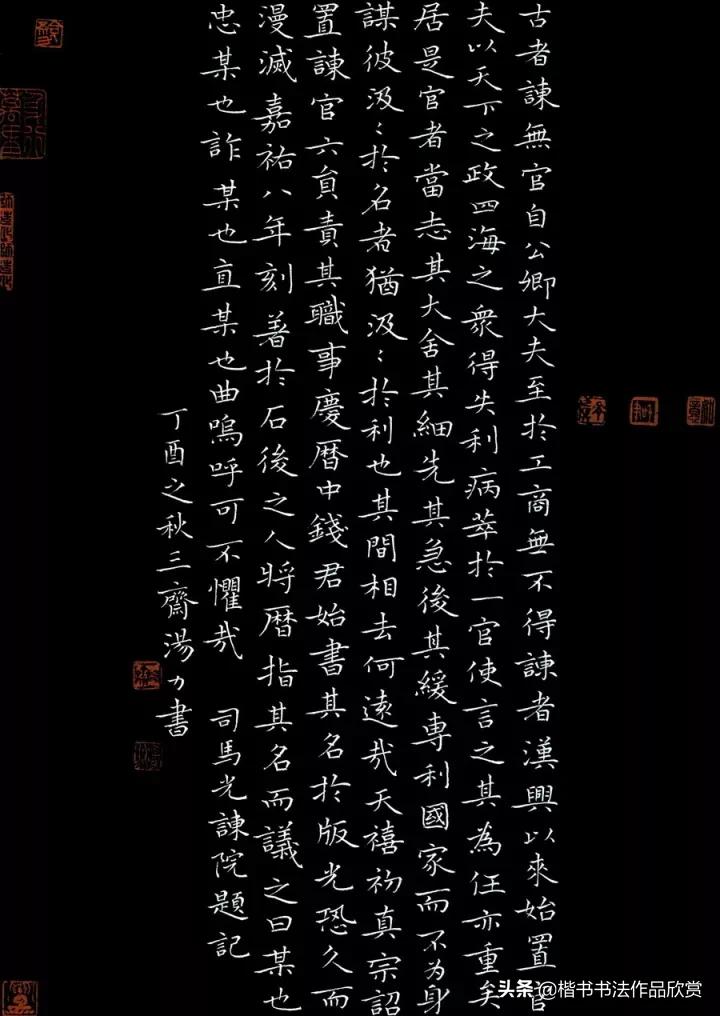 古者諫無官自公卿大夫至於工商無不得諫者漢興以來始置官
夫以天下之政四海之衆得失利病萃於一官使言之其為任亦重矣
居是官者當志其大舍其細先其急後其緩專利國家而不为身
謀彼汲〻於名者猶汲〻於利也其間相去何遠哉天禧初真宗詔
置諫官六貟責其職事慶暦中錢君始書其名於版光恐久而
漫滅嘉祐八年刻著於石後之人將暦指其名而議之曰某也
忠某也詐某也直某也曲嗚呼可不懼哉 司馬光諫院題記
丁酉之秋三齋湯力書
头条@楷书书法作品欣赏